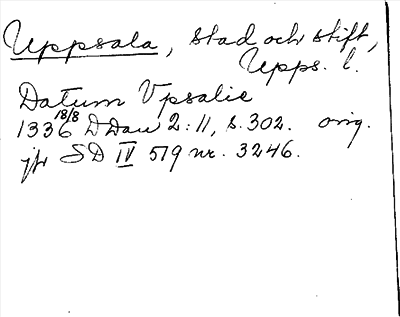 Uppsala, stad och stift,
Upps. l.
Datum Vpsalie
1336 18/8 DDan 2:11, s. 302. orig.
jfr SD IV 579 nr. 3246.